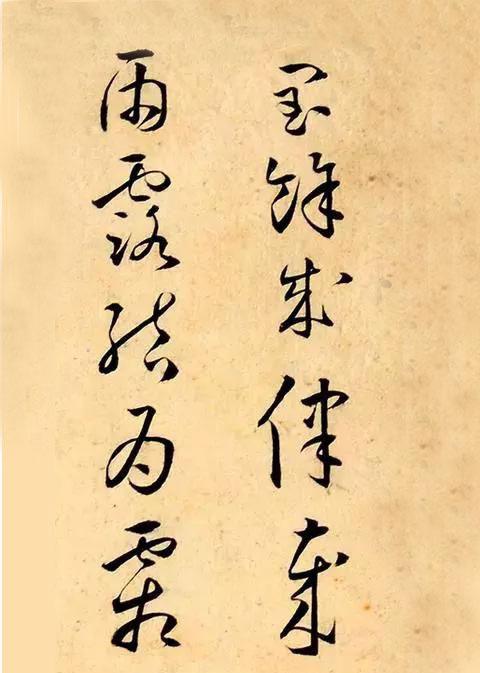 閏餘成律歲
雨露結為霜